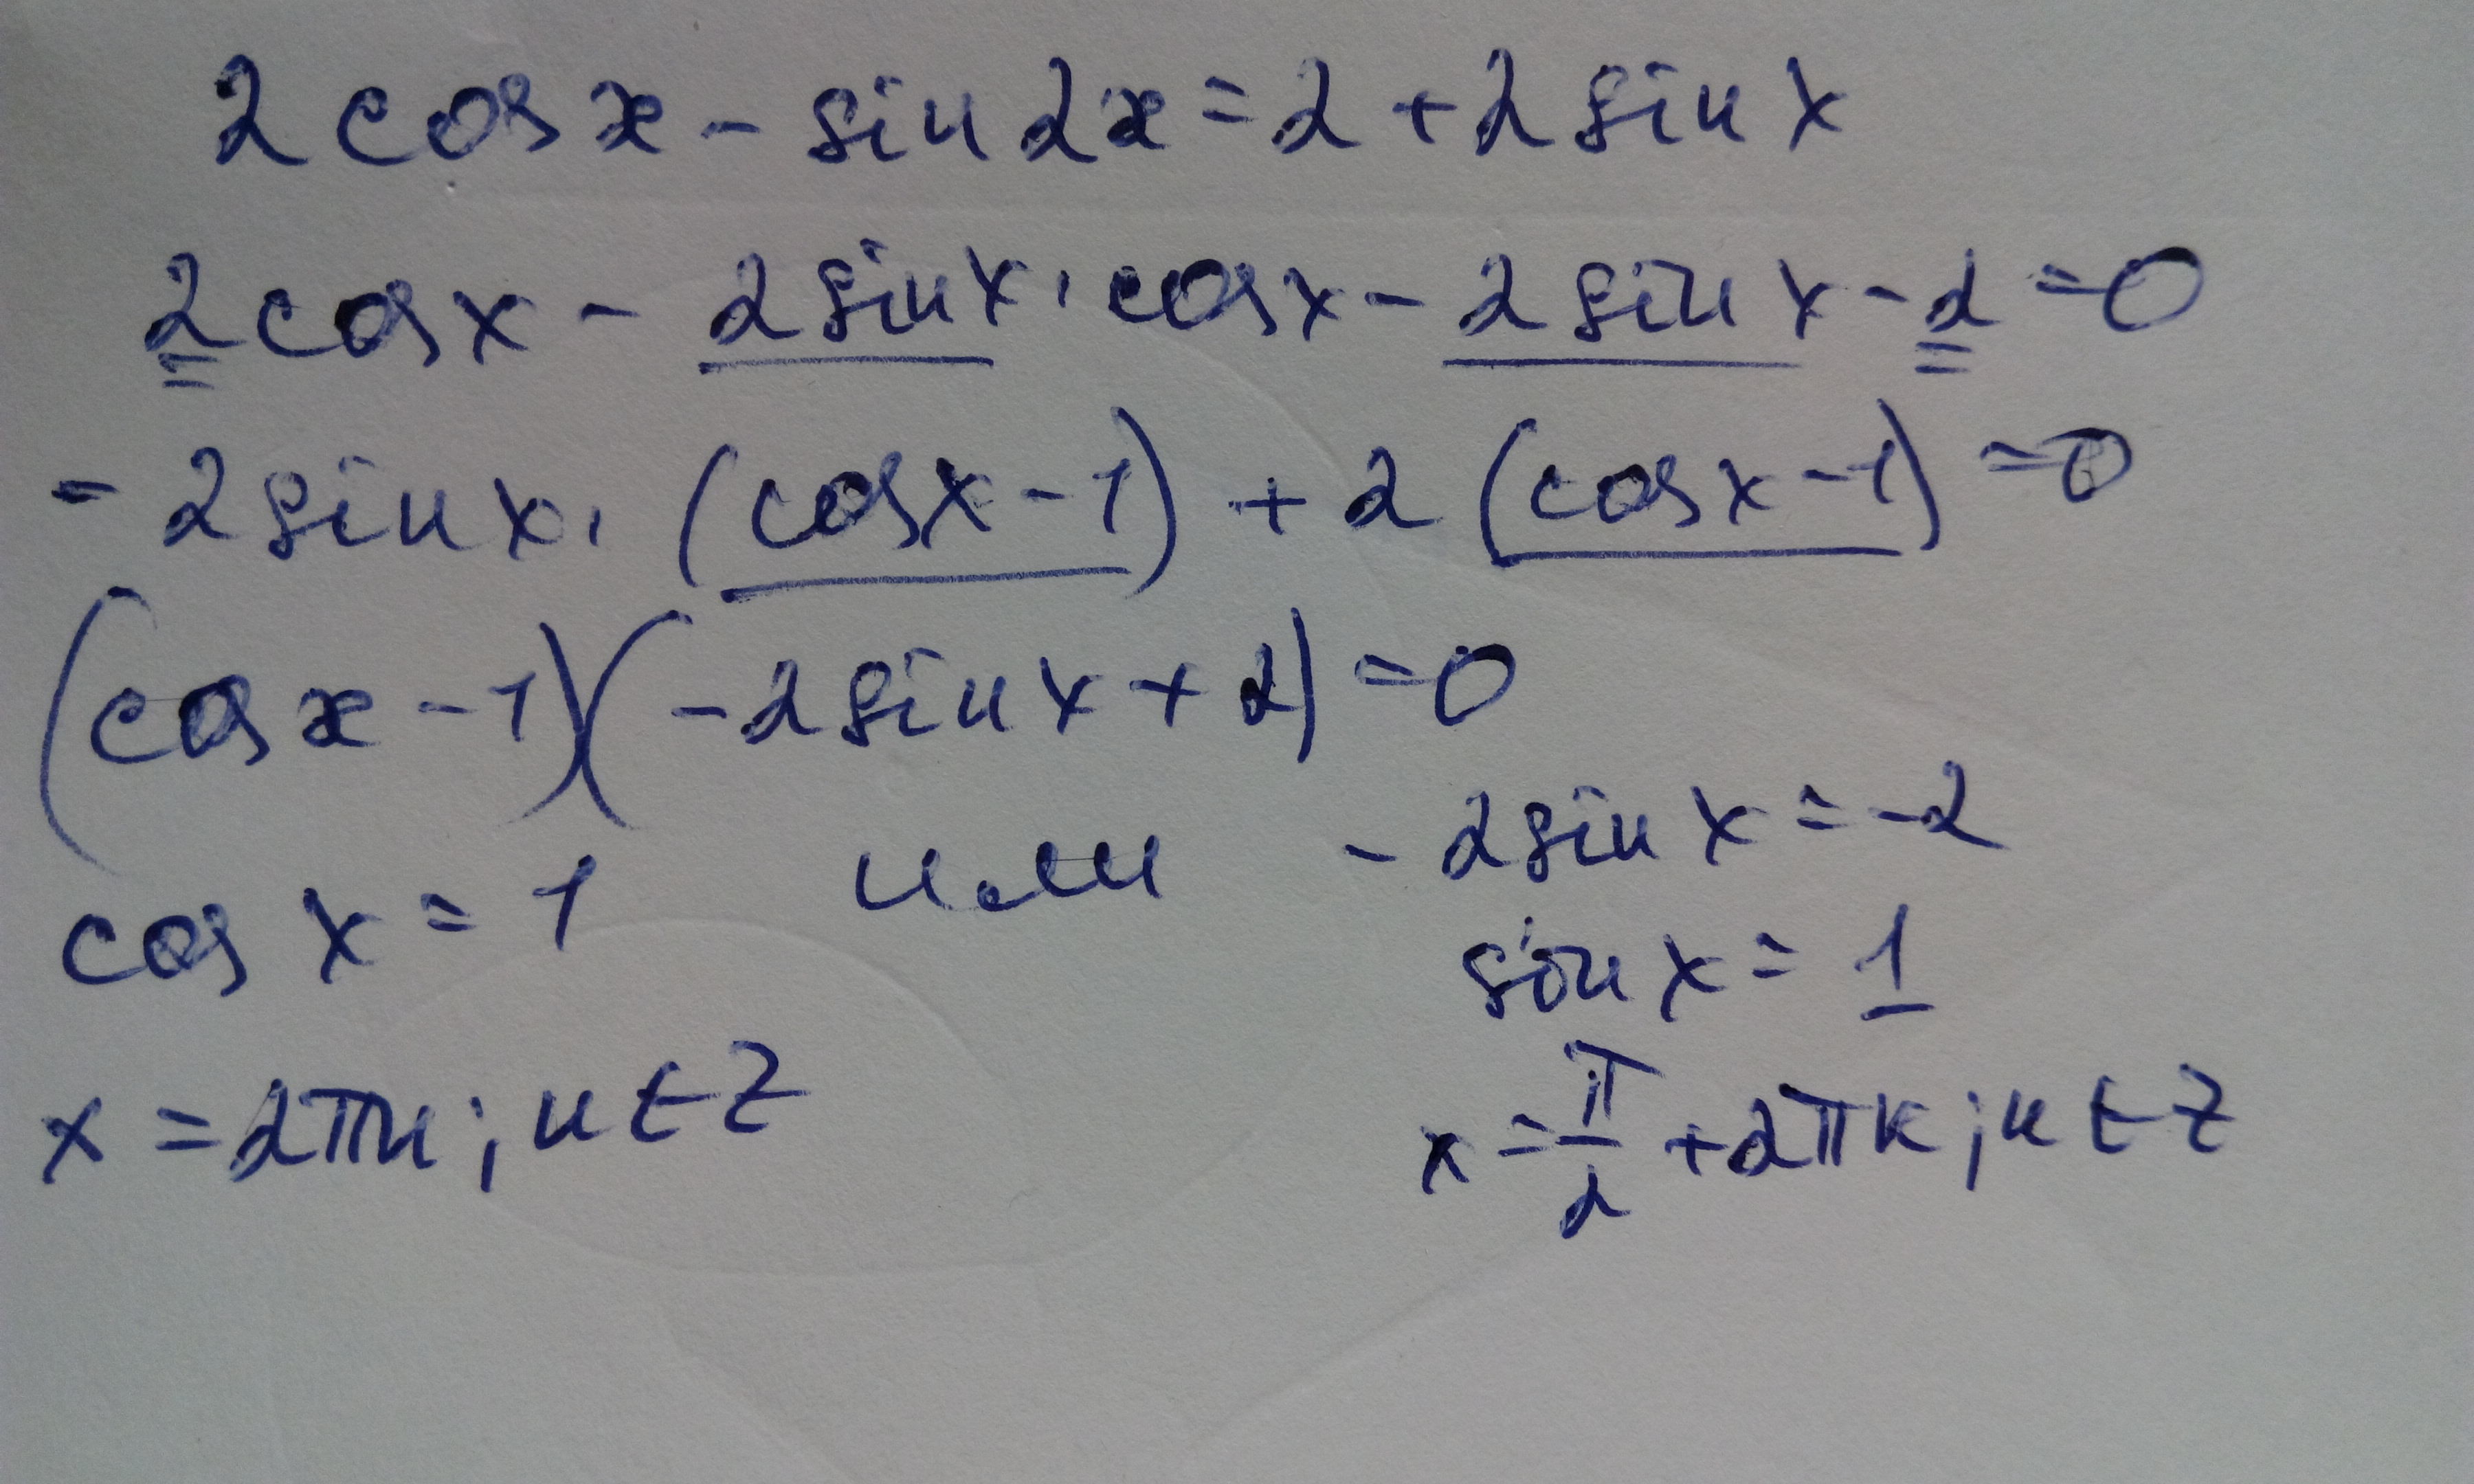 2 cos x - sin 2x = 2 + 2 sin x
2 cos x - 2 sin x · cos x - 2 sin x - 2 = 0
- 2 sin x · (cos x - 1) + 2 (cos x - 1) = 0
(cos x - 1)(-2 sin x + 2) = 0
cos x = 1 или - 2 sin x = -2
sin x = 1
x = 2πn; n ∈ Z x = π/2 + 2πk; k ∈ Z